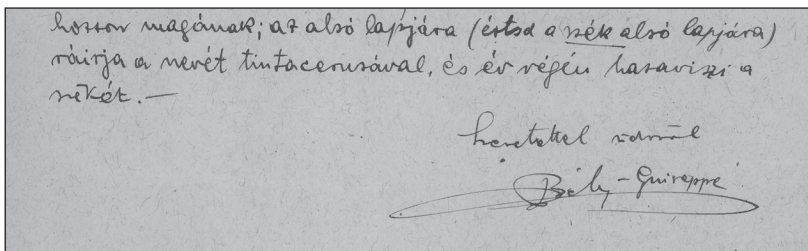 hozzon magának; az alsó lapjára (értsd a szék alsó lapjára)
ráírja a nevét tintaceruzával, és év végén hazaviszi a
székét. —
szeretettel üdvözöl
Béla-Guiseppe